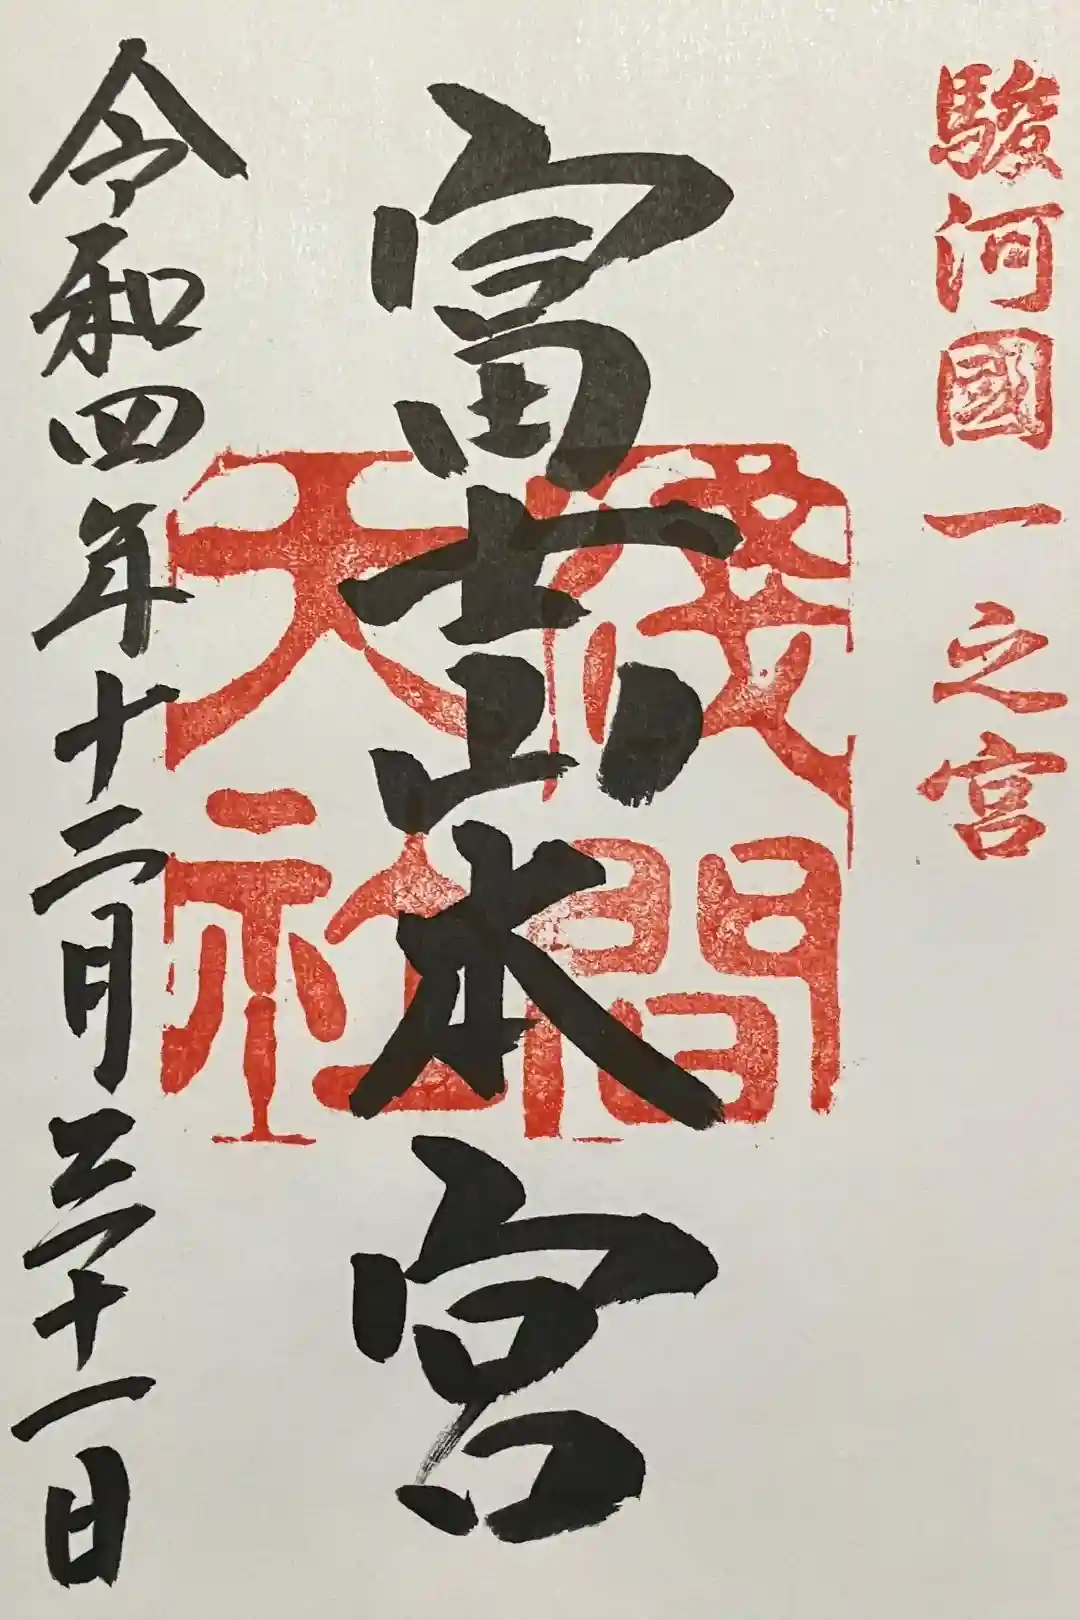 駿河國一之宮
富士山本宮
淺間
大社
令和四年十二月三十一日